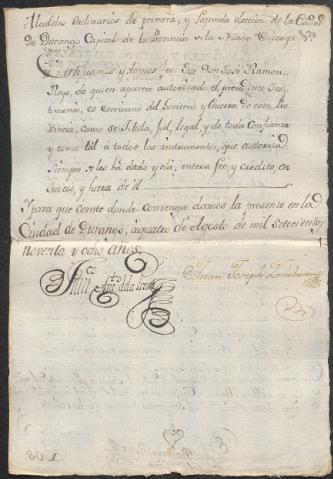 Alcaldes Ordinarios de primera, y segunda eleccion de la Ciudad
de Durango Capital de la Provincia de la Nueva Vizcaya &ca
Certificamos y damos fee Que Don José Ramon
Royo, de quien aparece autorizado el presente Tes-
timonio, es escrivano del Govierno y Guerra de esta Pro
vincia, como se titula, fiel, legal, y de toda Confianza
y como tál â todos los instrumentos, que autoriza
siempre se les há dado y dá, entera feé, y crédito, en
Juicio, y fuera de él
Y para que conste donde convenga damos la presente en la
Ciudad de Durango, â quatro de Agosto de mil setecientos
noventa y ocho años.
Juan Joseph